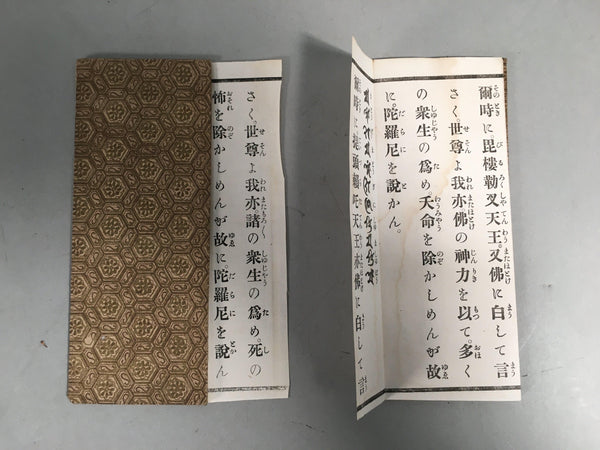 爾時に毘樓勒叉天王。又佛に白して言
さく。世尊よ我亦佛の神力を以て。多く
の衆生の爲め。夭命を除かしめんが故
に。陀羅尼を說かん。
爾時に提頭賴吒天王亦佛に白して言
さく。世尊よ我亦諸の衆生の爲め。死の
怖を除かしめんが故に。陀羅尼を說ん